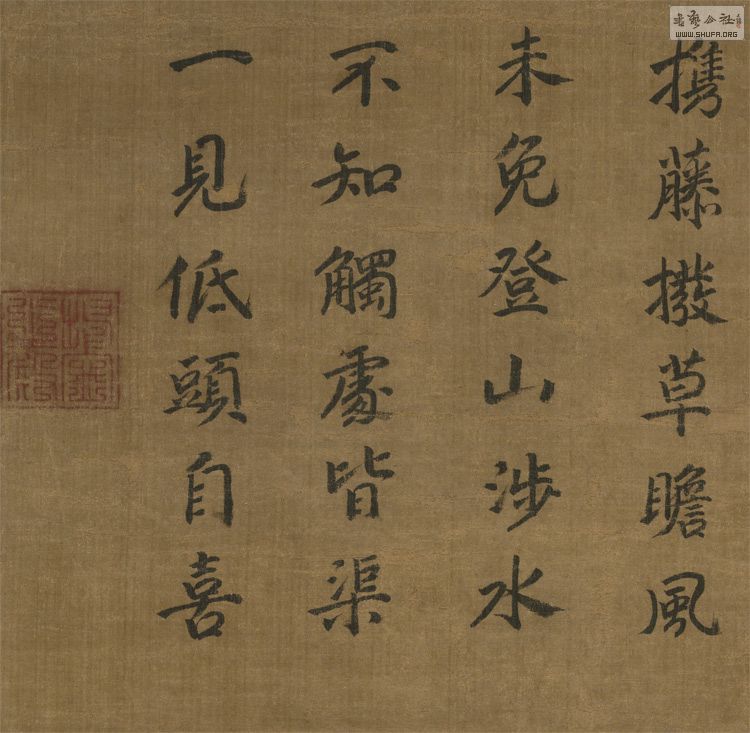 攜藤撥草瞻風
未免登山涉水
不知觸處皆渠
一見低頭自喜
WWW.SHUFA.ORG